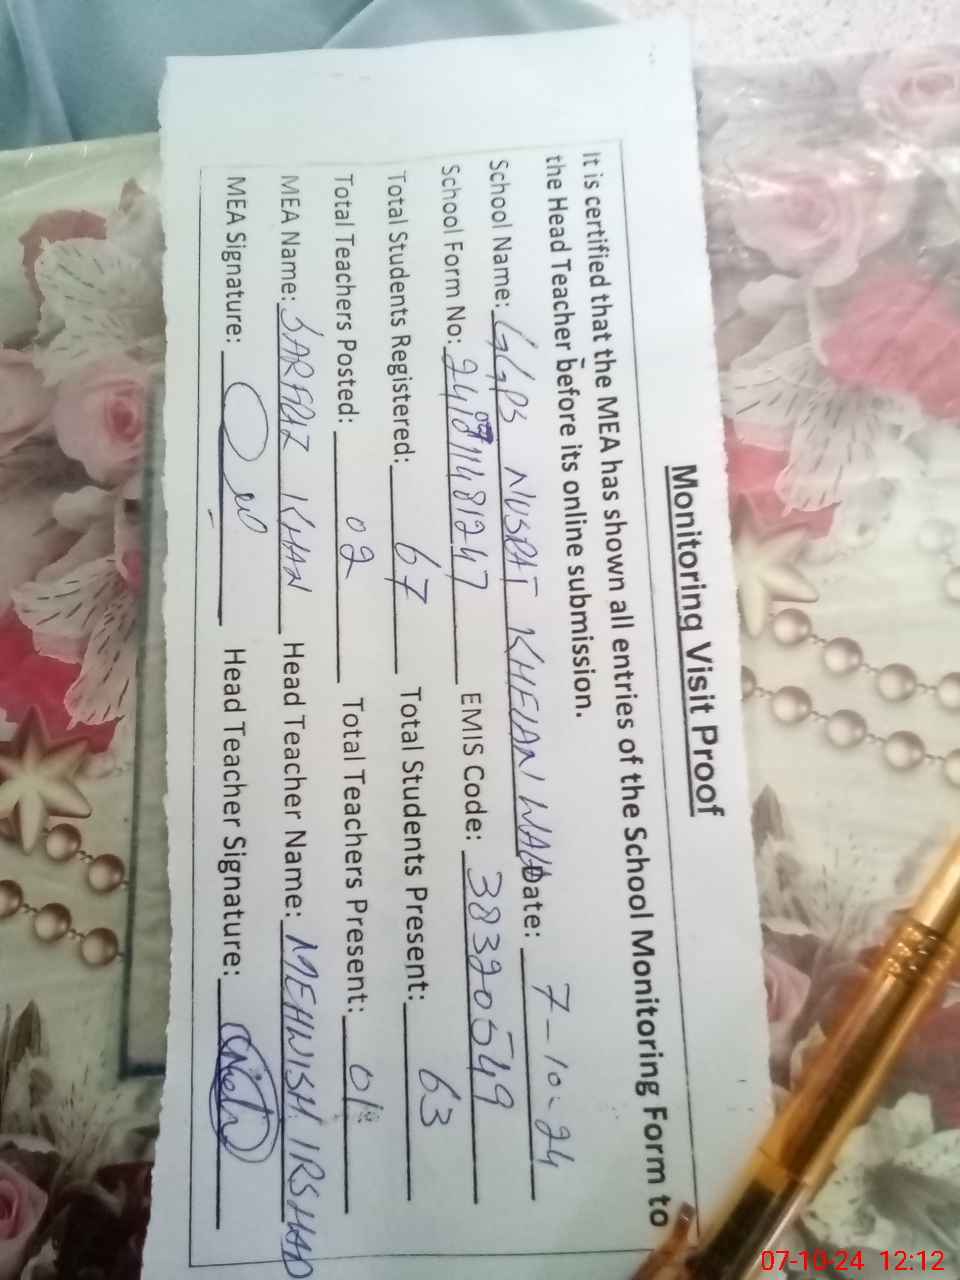 Monitoring Visit Proof
It is certified that the MEA has shown all entries of the School Monitoring Form to
the Head Teacher before its online submission.
School Name: GGPS NUSRAT KHELAN WALA Date: 7-10-24
School Form No: EMIS Code: 38320549
Total Students Registered: 67 Total Students Present: 63
Total Teachers Posted: 02 Total Teachers Present: 01
MEA Name: SARFRAZ KHAN Head Teacher Name: MEHWISH IRSHAD
MEA Signature: Head Teacher Signature:
07-10-24 12:12